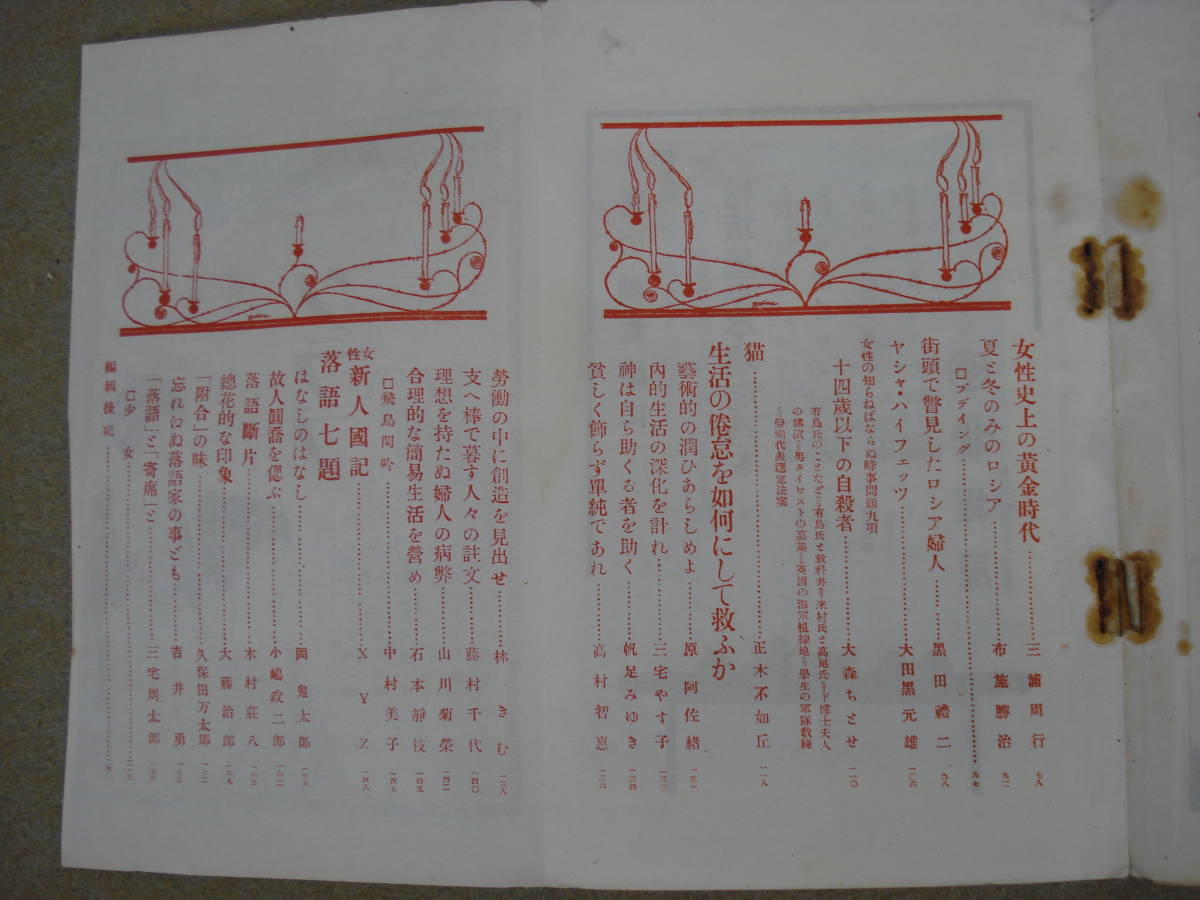 女性史上の黃金時代…………三浦周行 七八
夏と冬のみのロシア…………布施勝治 九一
□プデイング…………九七
街頭で瞥見したロシア婦人…………黑田禮二 九八
ヤシャ・ハイフェッツ…………大田黑元雄 一〇六
女性の知らねばならぬ時事問題九項
十四歲以下の自殺者…………大森ちとせ 一一〇
有島氏のことなど=有島氏と敎科書=米村氏と高尾氏=ド博士夫人
の講演=男タイピストの募集=英國の海軍根據地=學生の軍隊敎練
=勞働代表選定法案
猫…………正木不如丘 一一八
生活の倦怠を如何にして救ふか
藝術的の潤ひあらしめよ…………原阿佐緖
內的生活の深化を計れ…………三宅やす子
神は自ら助くる者を助く…………帆足みゆき 一三四
貧しく飾らず單純であれ…………高村智惠 一三六
勞働の中に創造を見出せ…………林きむ
支へ棒で暮す人々の註文…………藤村千代 一四〇
理想を持たぬ婦人の病弊…………山川菊榮
合理的な簡易生活を營め…………石本靜枝 一四五
□飛鳥閑吟…………中村美子 一四七
女性新人國記…………XYZ 一四八
落語七題
はなしのはなし…………岡鬼太郎
故人圓喬を偲ぶ…………小嶋政二郎
落語斷片…………木村莊八
總花的な印象…………大藤治郎
「附合」の味…………久保田万太郎
忘れられぬ落語家の事ども…………吉井勇
「落語」と「寄席」と…………三宅周太郎
□少女…………
編輯後記…………